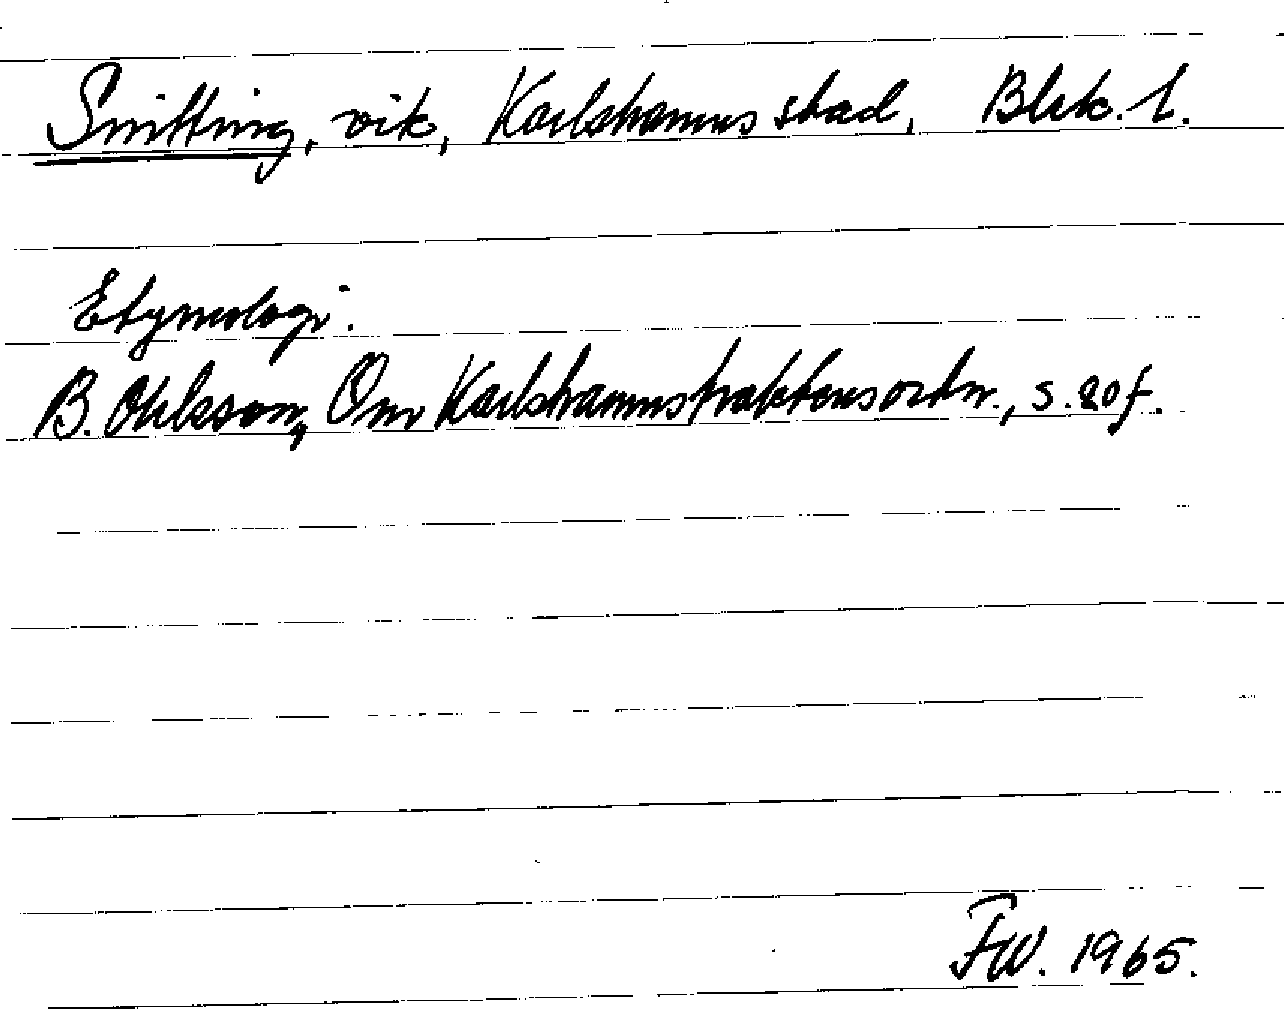 Snitting, vik, Karlshamns stad, Blek. l.
Etymologi.
B. Ohlsson, Om Karlshamnstraktens ortn., s. 20 f.
FW. 1965.